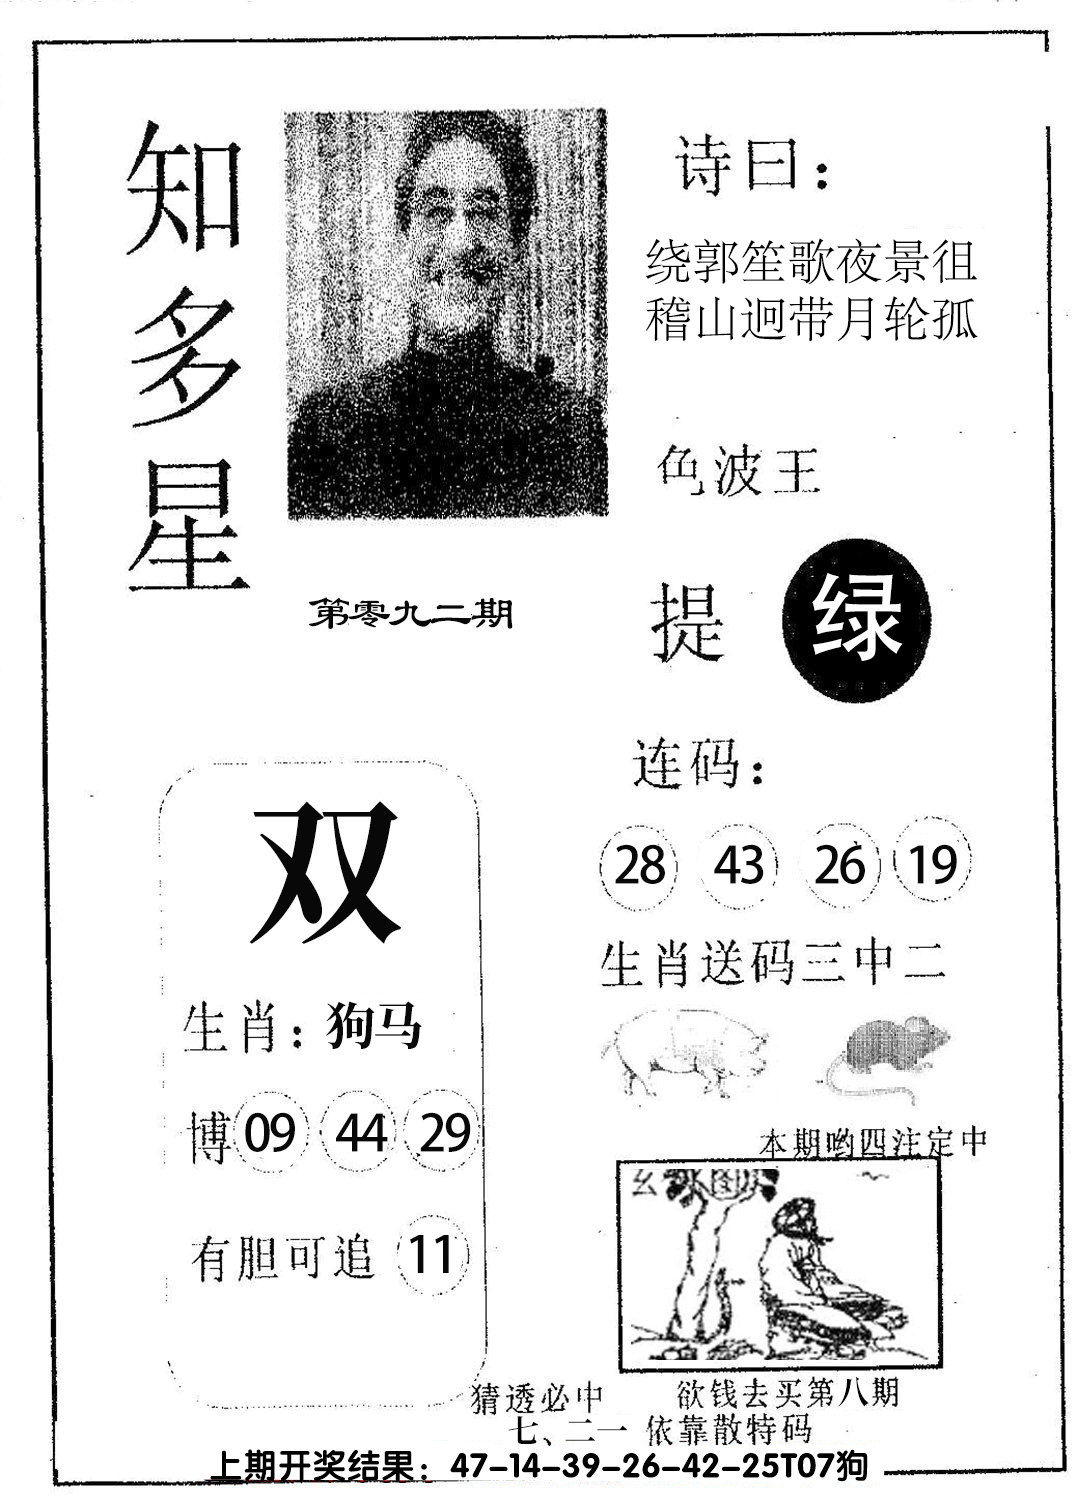 知多星
诗曰：
绕郭笙歌夜景徂
稽山迥带月轮孤
色波王
提 绿
第零九二期
连码：
28 43 26 19
生肖送码三中二
双
生肖：狗马
博 09 44 29
有胆可追 11
本期哟四注定中
玄 图
猜透必中 欲钱去买第八期
七、二一 依靠散特码
上期开奖结果：47-14-39-26-42-25T07狗